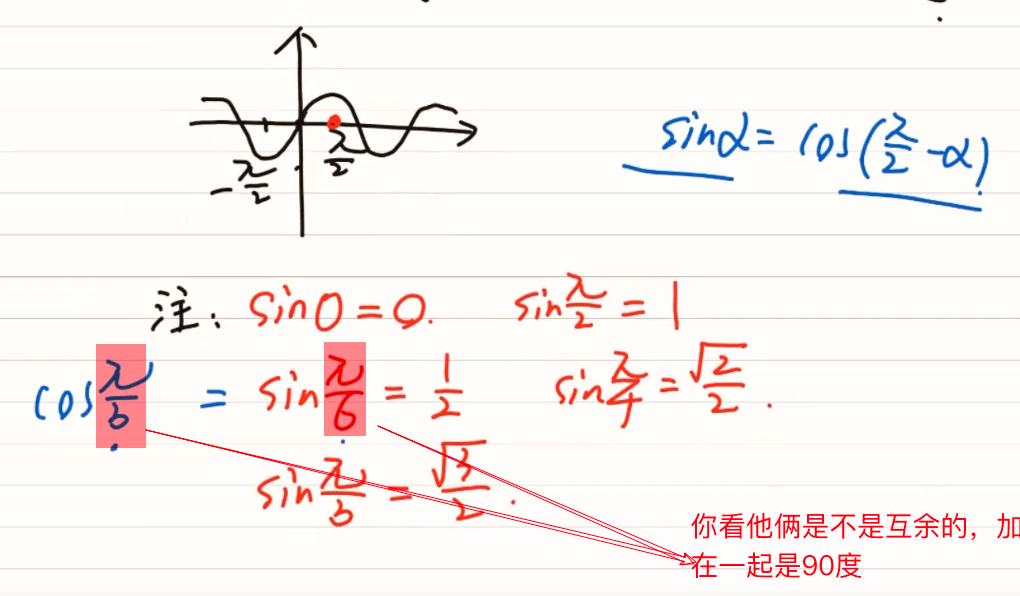 -π/2 π/2
sinα = cos(π/2 -α)
注: sin0 = 0. sinπ/2 = 1
cosπ/3 = sinπ/6 = 1/2 sinπ/4 = √2/2.
sinπ/3 = √3/2.
你看他俩是不是互余的，加
在一起是90度